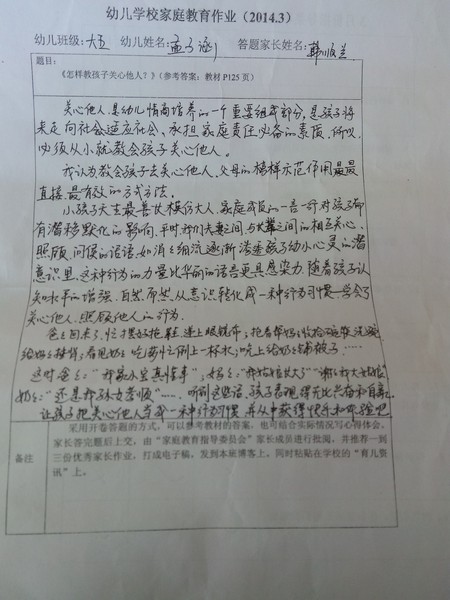 幼儿学校家庭教育作业（2014.3）
幼儿班级：大五 幼儿姓名：孟子涵 答题家长姓名：韩顺兰
题目：
《怎样教孩子关心他人？》（参考答案：教材 P125 页）
关心他人，是幼儿情商培养的一个重要组成部分，是孩子将
来走向社会适应社会、承担家庭责任必备的素质，所以
必须从小就教会孩子关心他人。
我认为教会孩子去关心他人，父母的榜样示范作用是最
直接、最有效的方式方法。
小孩子天生最善于模仿大人，家庭成员的一言一行对孩子都
有潜移默化的影响，平时我们夫妻之间、与长辈之间的相互关心、
照顾、问候的话语，如涓涓细流逐渐渗透孩子幼小心灵的潜
意识里，这种行为的力量比华丽的语言更具感染力，随着孩子认
知水平的增强，自然而然，从意识转化成一种行为习惯—学会了
关心他人、照顾他人的行为。
爸爸回来了，忙摆好拖鞋，递上眼镜布；抢着帮妈妈收拾碗筷、洗碗
给妈妈捶背；看见奶奶吃药忙倒上一杯水；晚上给奶奶铺被子……
这时爸爸："我家小宝真懂事"，妈妈："我姑娘长大了""谢谢我大姑娘"
奶奶："还是我孙女孝顺"……听到这些话，孩子表现得无比兴奋和自豪。
让孩子把关心他人当成一种行为习惯，并从中获得快乐和体验吧
备注
采用开卷答题的方式，可以参考教材的答案，也可结合实际情况写心得体会。
家长答完题后上交，由"家庭教育指导委员会"家长成员进行批阅，并推荐一到
三份优秀家长作业，打成电子稿，发到本班博客上，同时粘贴在学校的"育儿资
讯"上。